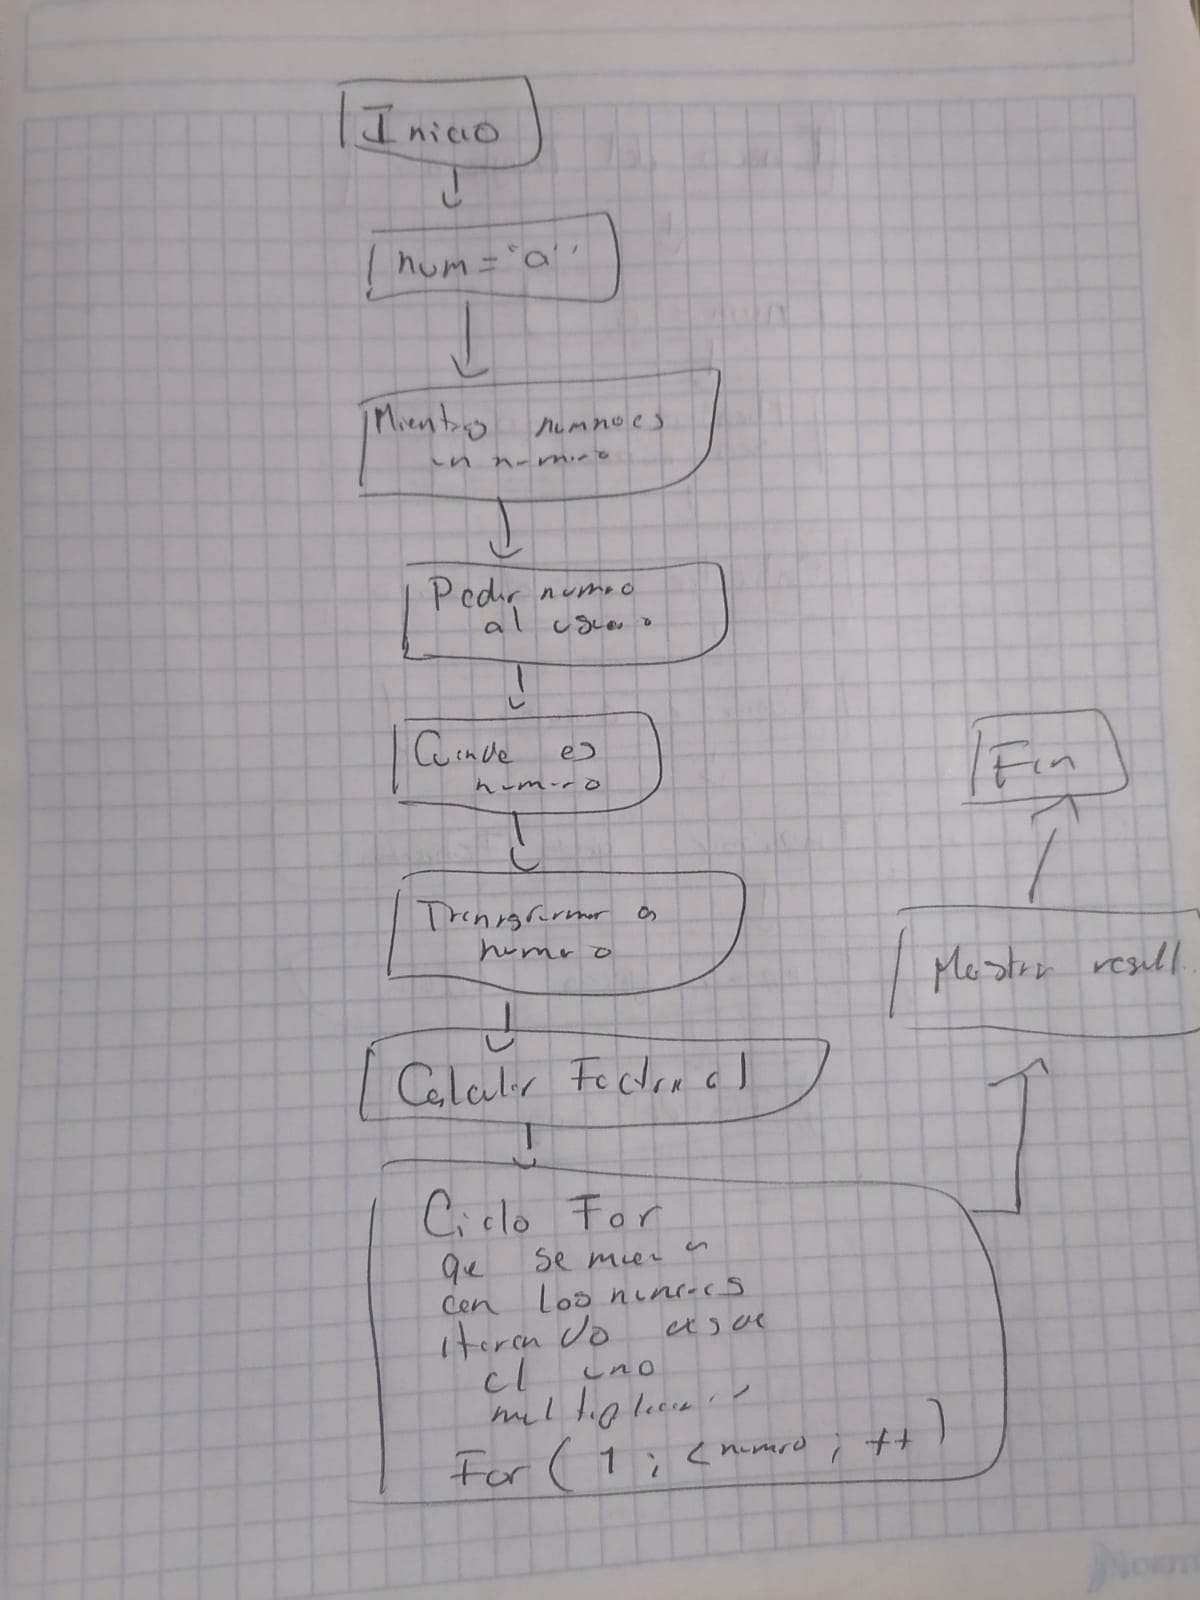 Inicio
num = "a"
Mientras num no es
un numero
Pedir numero
al usuario
Cuando es
numero
Transformar a
numero
Calcular Factorial
Ciclo For
que se mueva
con los numeros
iterando desde
el uno
For ( 1 ; < numero ; ++ )
Mostrar result.
Fin
NORMA